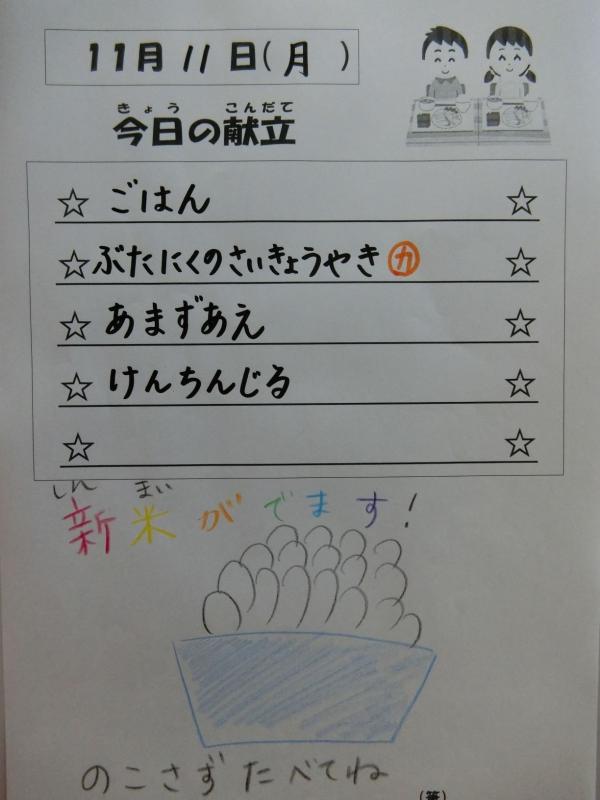 11月 11 日(月 )
きょう こんだて
今日の献立
☆ ごはん ☆
☆ ぶたにくのさいきょうやき カ ☆
☆ あまずあえ ☆
☆ けんちんじる ☆
☆ ☆
しん まい
新米がでます!
のこさずたべてね